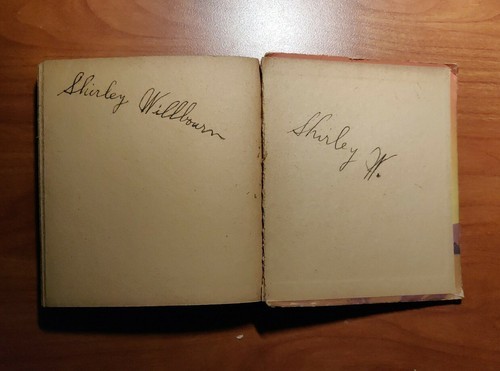 Shirley Willbourn
Shirley W.